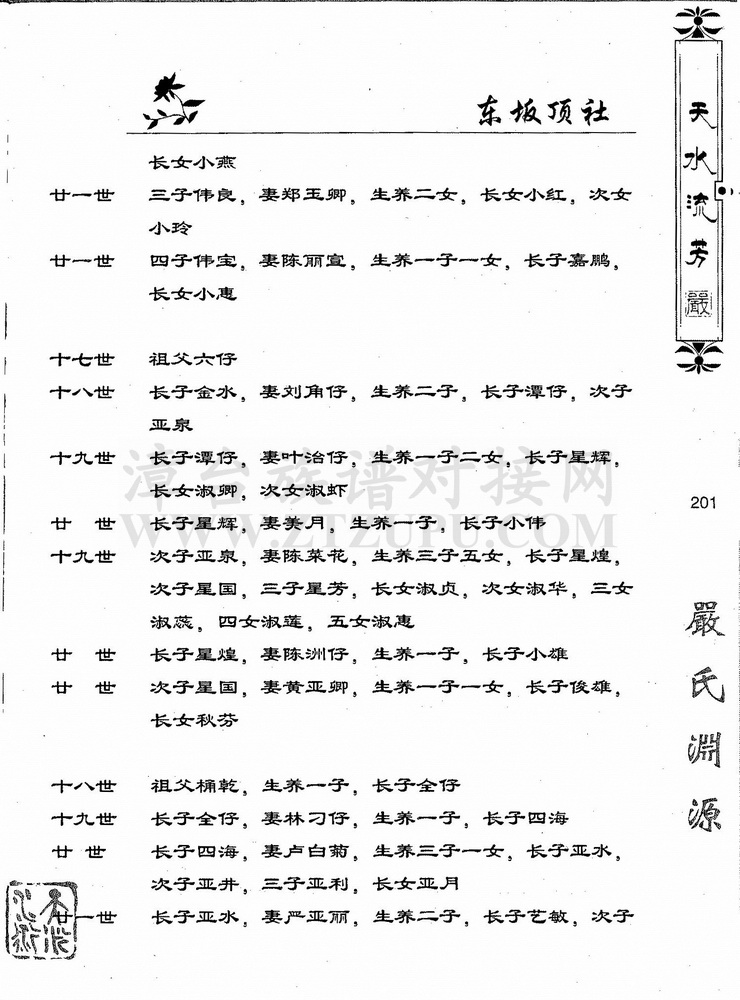 东坂顶社
长女小燕
廿一世 三子伟良，妻郑玉卿，生养二女，长女小红，次女
小玲
廿一世 四子伟宝，妻陈丽宣，生养一子一女，长子嘉鹏，
长女小惠
十七世 祖父六仔
十八世 长子金水，妻刘角仔，生养二子，长子潭仔，次子
亚泉
十九世 长子潭仔，妻叶治仔，生养一子二女，长子星辉，
长女淑卿，次女淑虾
廿 世 长子星辉，妻美月，生养一子，长子小伟
十九世 次子亚泉，妻陈菜花，生养三子五女，长子星煌，
次子星国，三子星芳，长女淑贞，次女淑华，三女
淑蕊，四女淑莲，五女淑惠
廿 世 长子星煌，妻陈洲仔，生养一子，长子小雄
廿 世 次子星国，妻黄亚卿，生养一子一女，长子俊雄，
长女秋芬
十八世 祖父桶乾，生养一子，长子全仔
十九世 长子全仔，妻林刁仔，生养一子，长子四海
廿 世 长子四海，妻卢白菊，生养三子一女，长子亚水，
次子亚井，三子亚利，长女亚月
廿一世 长子亚水，妻严亚丽，生养二子，长子艺敏，次子
天水流芳
嚴
201
嚴氏淵源
漳台族谱对接网
WWW.ZTZUPU.COM